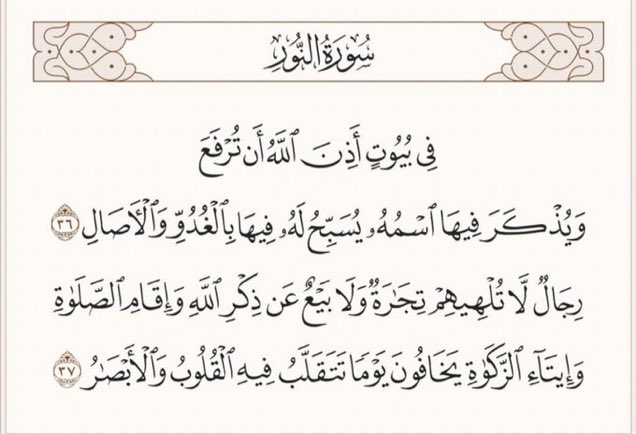 سُورَةُ النُّورِ
فِي بُيُوتٍ أَذِنَ ٱللَّهُ أَن تُرْفَعَ
وَيُذْكَرَ فِيهَا ٱسْمُهُۥ يُسَبِّحُ لَهُۥ فِيهَا بِٱلْغُدُوِّ وَٱلْأٓصَالِ ٣٦
رِجَالٌ لَّا تُلْهِيهِمْ تِجَٰرَةٌ وَلَا بَيْعٌ عَن ذِكْرِ ٱللَّهِ وَإِقَامِ ٱلصَّلَوٰةِ
وَإِيتَآءِ ٱلزَّكَوٰةِ يَخَافُونَ يَوْمًا تَتَقَلَّبُ فِيهِ ٱلْقُلُوبُ وَٱلْأَبْصَٰرُ ٣٧